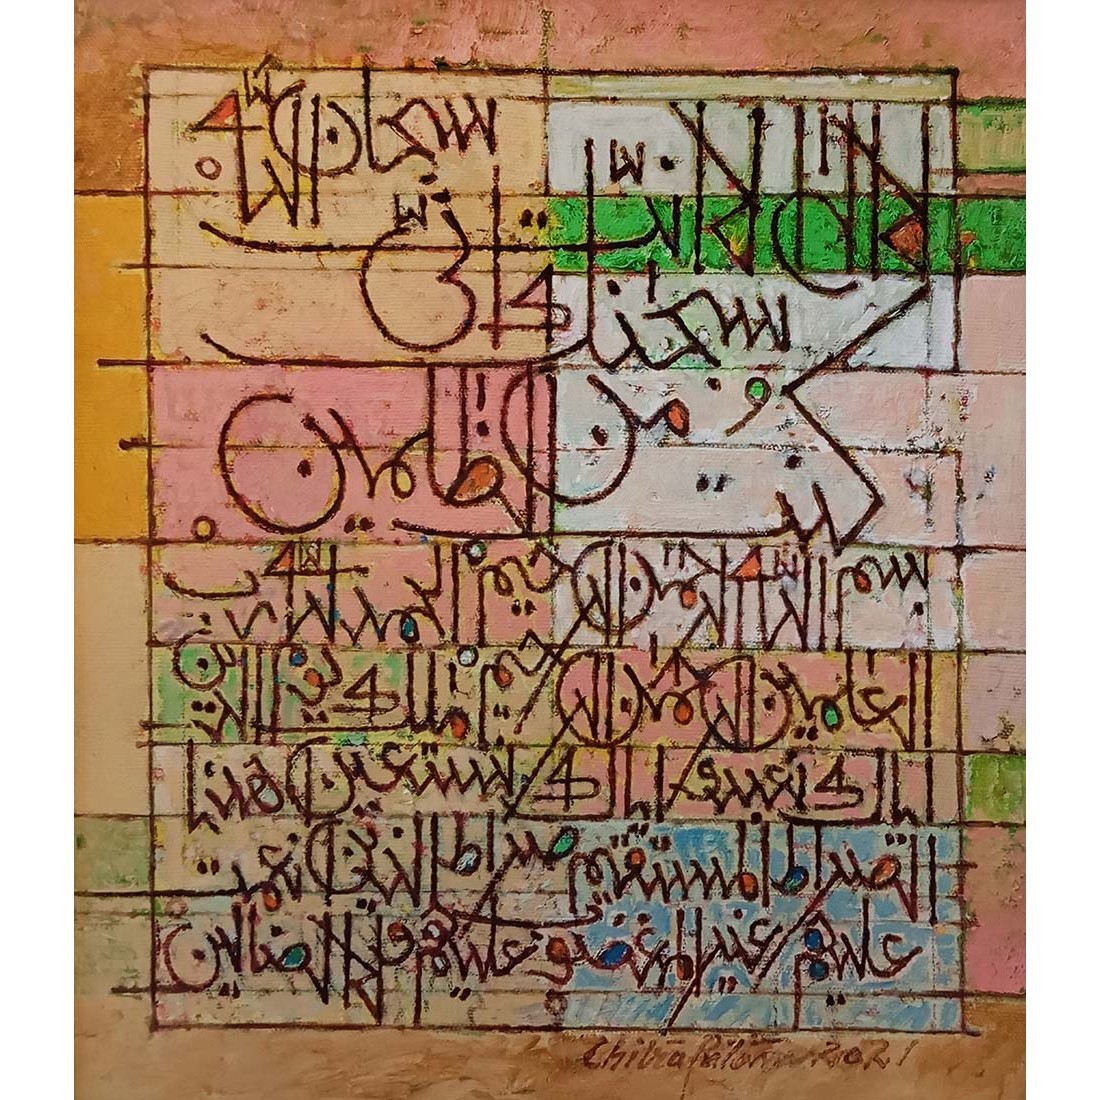 سبحان الله
سبحنك انى
كنت من الظلمين
بسم الله الرحمن الرحيم الحمد لله رب
العالمين الرحمن الرحيم ملك يوم الدين
اياك نعبد و اياك نستعين اهدنا
الصراط المستقيم صراط الذين انعمت
عليهم غير المغضوب عليهم ولا الضالين
2021